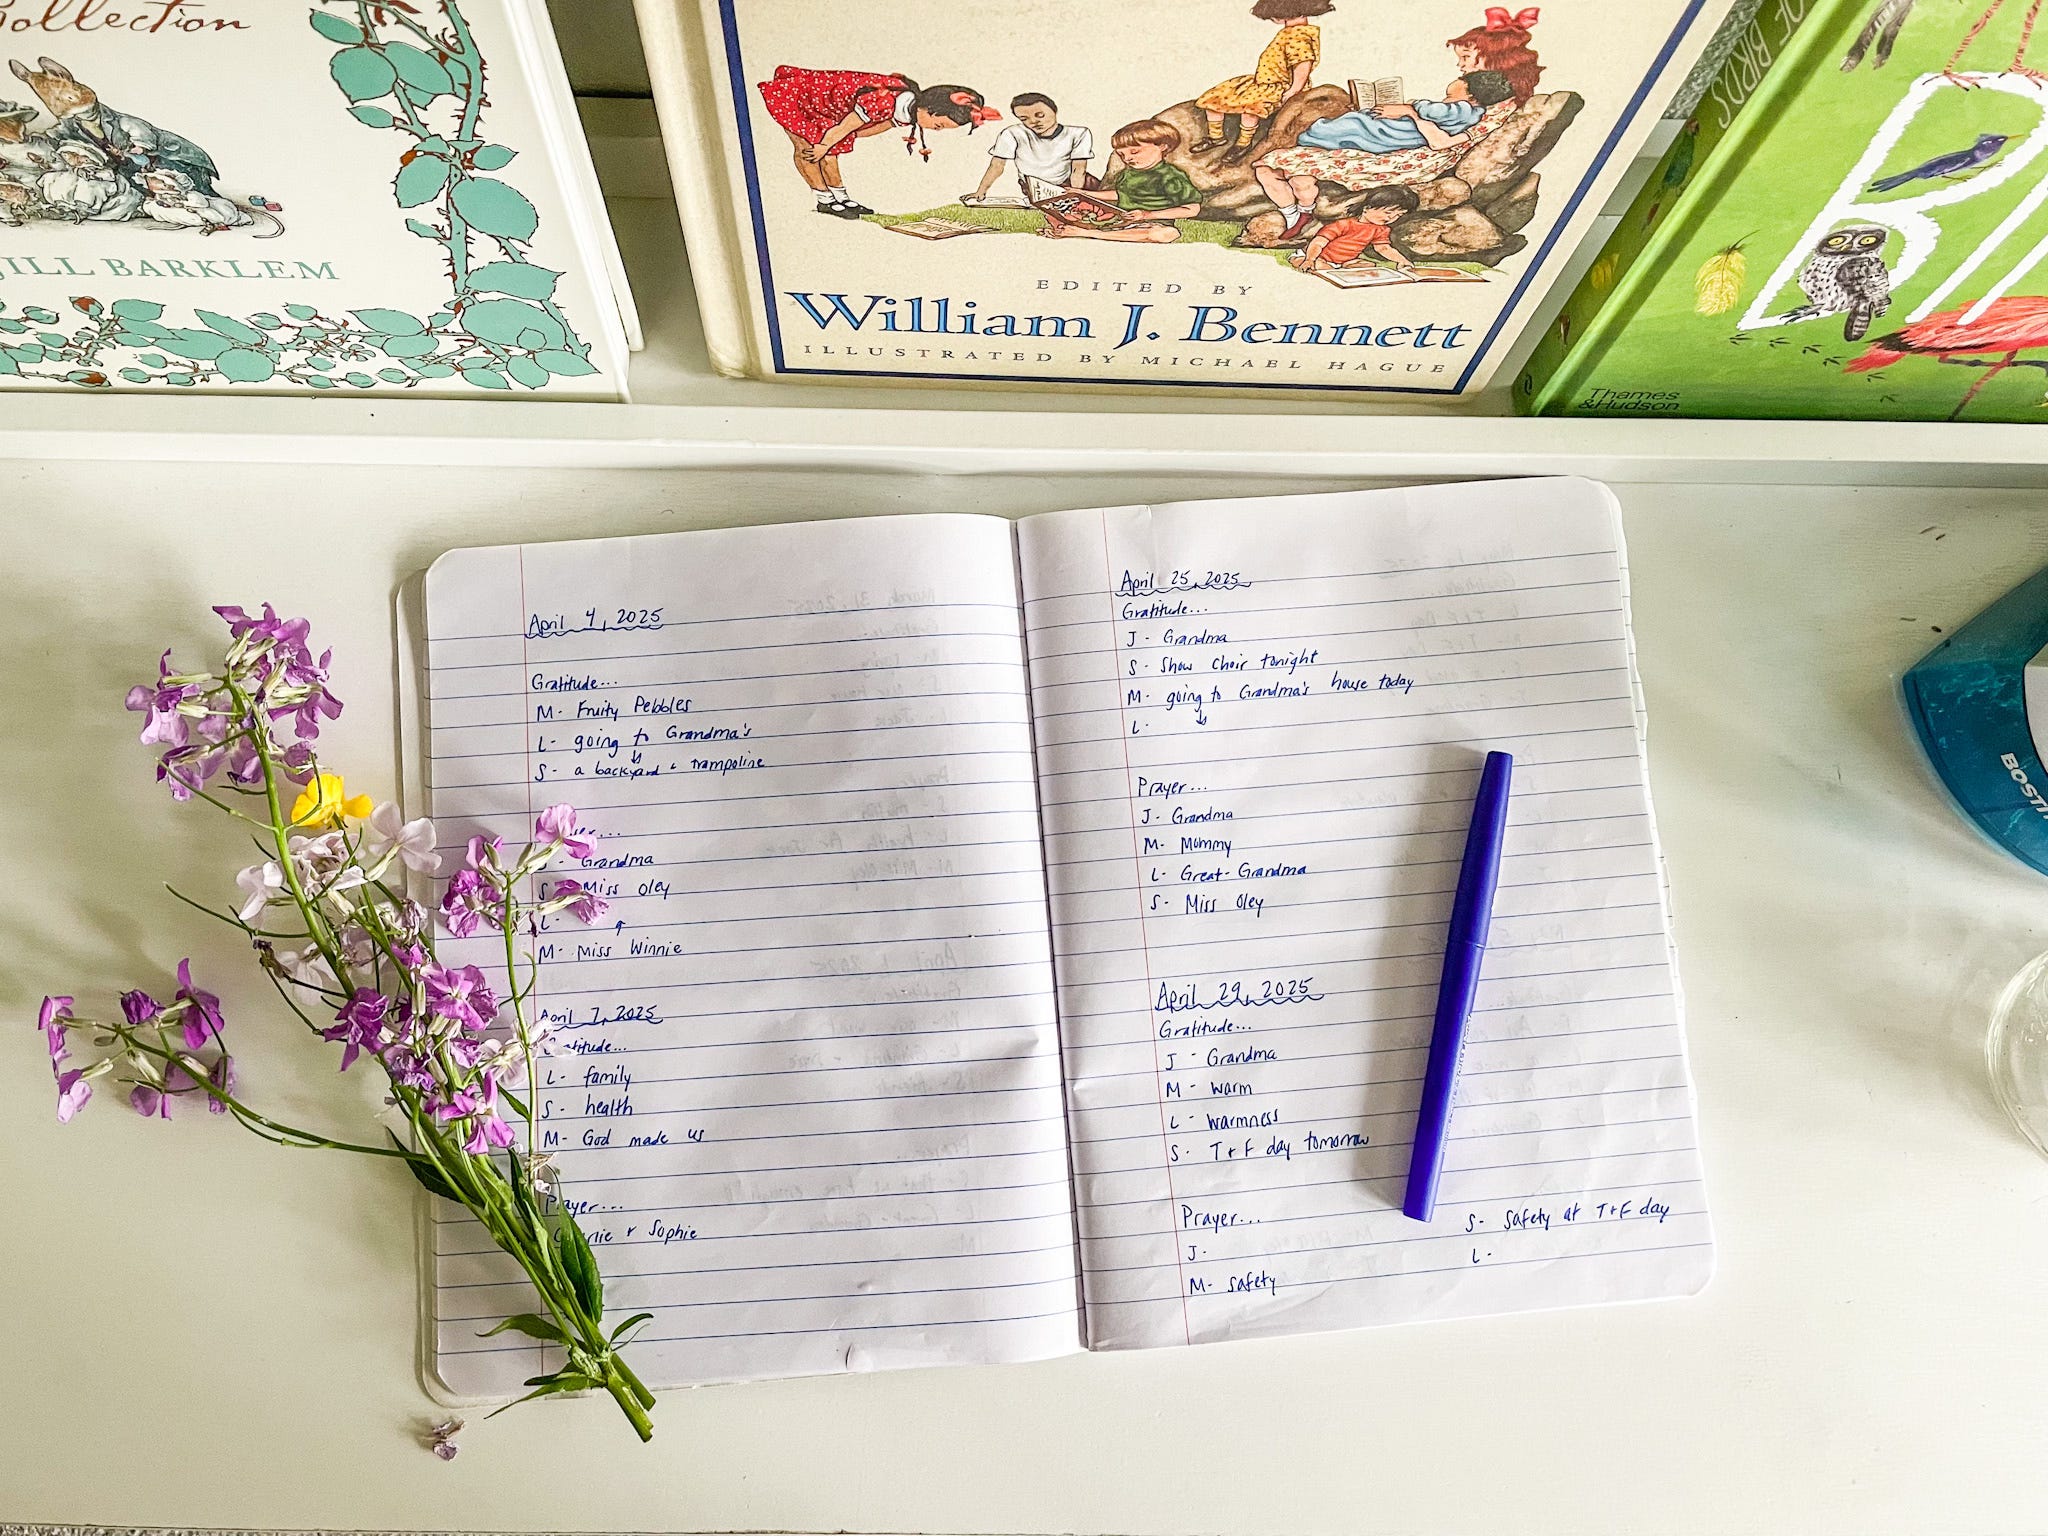 Collection
JILL BARKLEM
EDITED BY
William J. Bennett
ILLUSTRATED BY MICHAEL HAGUE
OF BIRDS
Thames
&Hudson
April 4, 2025
Gratitude...
M- Fruity Pebbles
L- going to Grandma's
S- a backyard & trampoline
J- Grandma
S- Miss Oley
L-
M- Miss Winnie
April 7, 2025
Gratitude...
L- family
S- health
M- God made us
Prayer...
& Sophie
April 25, 2025
Gratitude...
J- Grandma
S- Show choir tonight
M- going to Grandma's house today
L-
Prayer...
J- Grandma
M- Mommy
L- Great-Grandma
S- Miss Oley
April 29, 2025
Gratitude...
J- Grandma
M- warm
L- warmness
S- T+F day tomorrow
Prayer...
J-
M- safety
S- Safety at T+F day
L-